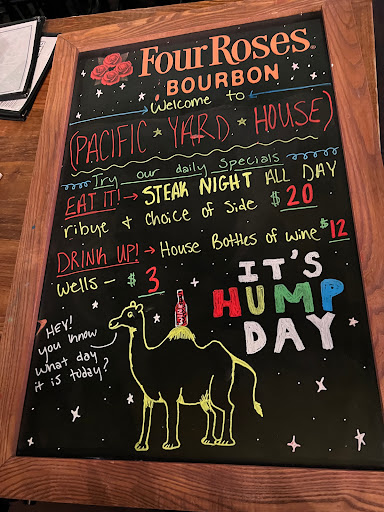 Four Roses®
BOURBON
Welcome to
(PACIFIC ★ YARD ★ HOUSE)
Try our daily Specials
EAT IT! → STEAK NIGHT ALL DAY
ribye & choice of side $20
DRINK UP! → House Bottles of wine $12
wells - $3
IT'S
HUMP
DAY
HEY!
you know
what day
it is today?